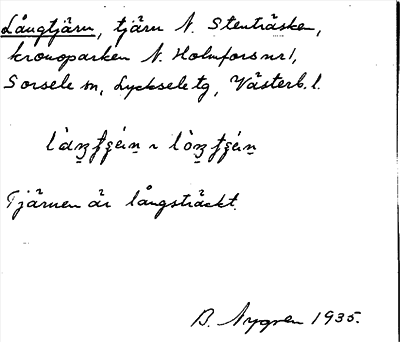 Långtjärn, tjärn N. Stenträsken,
kronoparken N. Holmfors nr 1,
Sorsele sn, Lycksele tg, Västerb. l.
Tjärnen är långsträckt.
B. Nygren 1935.